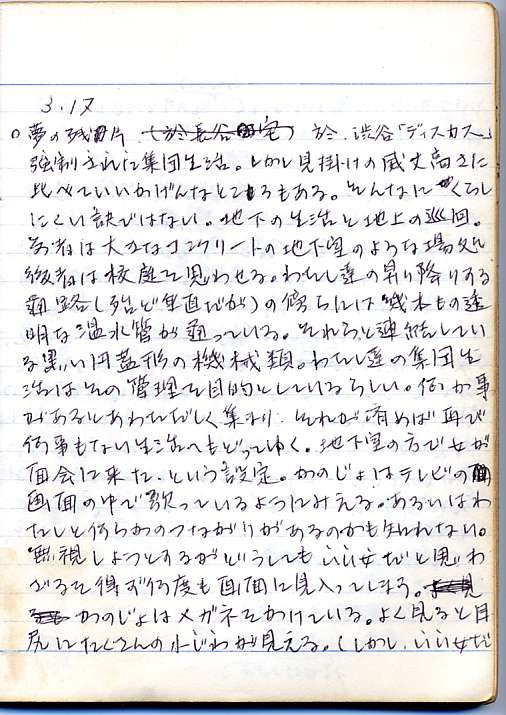 3.17
○夢の残片 於.渋谷「ディスカス」
強制された集団生活。しかし見掛けの威丈高さに
比べていいかげんなところもある。そんなに くらし
にくい訳ではない。地下の生活と地上の巡回。
前者は大きなコンクリートの地下室のような場処
後者は校庭を思わせる。わたし達の昇り降りする
通路(殆ど垂直だが)の傍らには幾本もの透
明な温水管が通っている。それらと連結してい
る黒い円蓋形の機械類。わたし達の集団生
活はその管理を目的としているらしい。何か事
があるとあわただしく集まり、それが済めば再び
何事もない生活へもどってゆく。地下室の方で女が
面会に来た、という設定。かのじょはテレビの
画面の中で歌っているようにみえる。あるいはわ
たしと何らかのつながりがあるのかも知れない。
無視しようとするがどうしてもいい女だと思わ
ざるを得ず何度も画面に見入ってしまう。
かのじょはメガネをかけている。よく見ると目
尻にたくさんの小じわが見える。(しかし、いい女だ